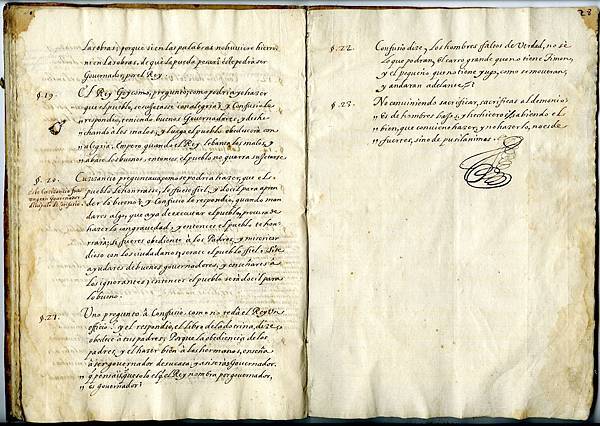 las obras; porque si en las palabras no huviere hierro,
ni en las obras, de què la puede pensar: este podrà ser
Governador, por el Rey.
§. 19. El Rey Gaycumo, preguntò; como podria yo hazer
que el pueblo, se sujetasse con alegria? y Confucio le
respondio, teniendo buenos Governadores, y deshe-
chando à los malos, y luego el pueblo obedecerà con
alegria. Empero quando el Rey, lebanta los malos, y
abate los buenos, entonces el pueblo no querrà sujetarse
§. 20. preguntava, como se podria hazer, que el
pueblo le honrasse, le fuesse fiel, y docil para apren
der lo bueno? y Confucio le respondio, quando man
dares algo, que aya de executar el pueblo, procura de
hazerlo con gravedad, y entonces el pueblo te hon
rarà; si fueres obediente à los Padres, y misericor
dioso con los ciudadanos; serate el pueblo fiel. Si te
ayudares de buenos governadores, y enseñares à
los ignorantes; entonces el pueblo serà docil para
lo bueno.
§. 21. Uno pregunto à Confucio, como no te dà el Rey Un
officio? y el respondio, el libro de la dotrina, dize
obedece à tus padres; Porque la obediencia de los
padres, y el hazer bien à los hermanos, enseña
à ser governador de su casa; y assi serás Governador.
pensais que solo el que el Rey nombra por governador,
es governador?
23
§. 22. Confucio dize, los hombres faltos de Verdad, no sè
lo que podran, el carro grande que no tiene timon,
y el pequeño que no tiene yugo, como se moveran,
y andaran adelante?
§. 23. No conviniendo sacrificar, sacrificas al demonio
es de hombres baxos, y hechizeros; Sabiendo el
bien, que conviene hazer, y no hazerlo, no es de
fuertes, sino de pusilanimes.